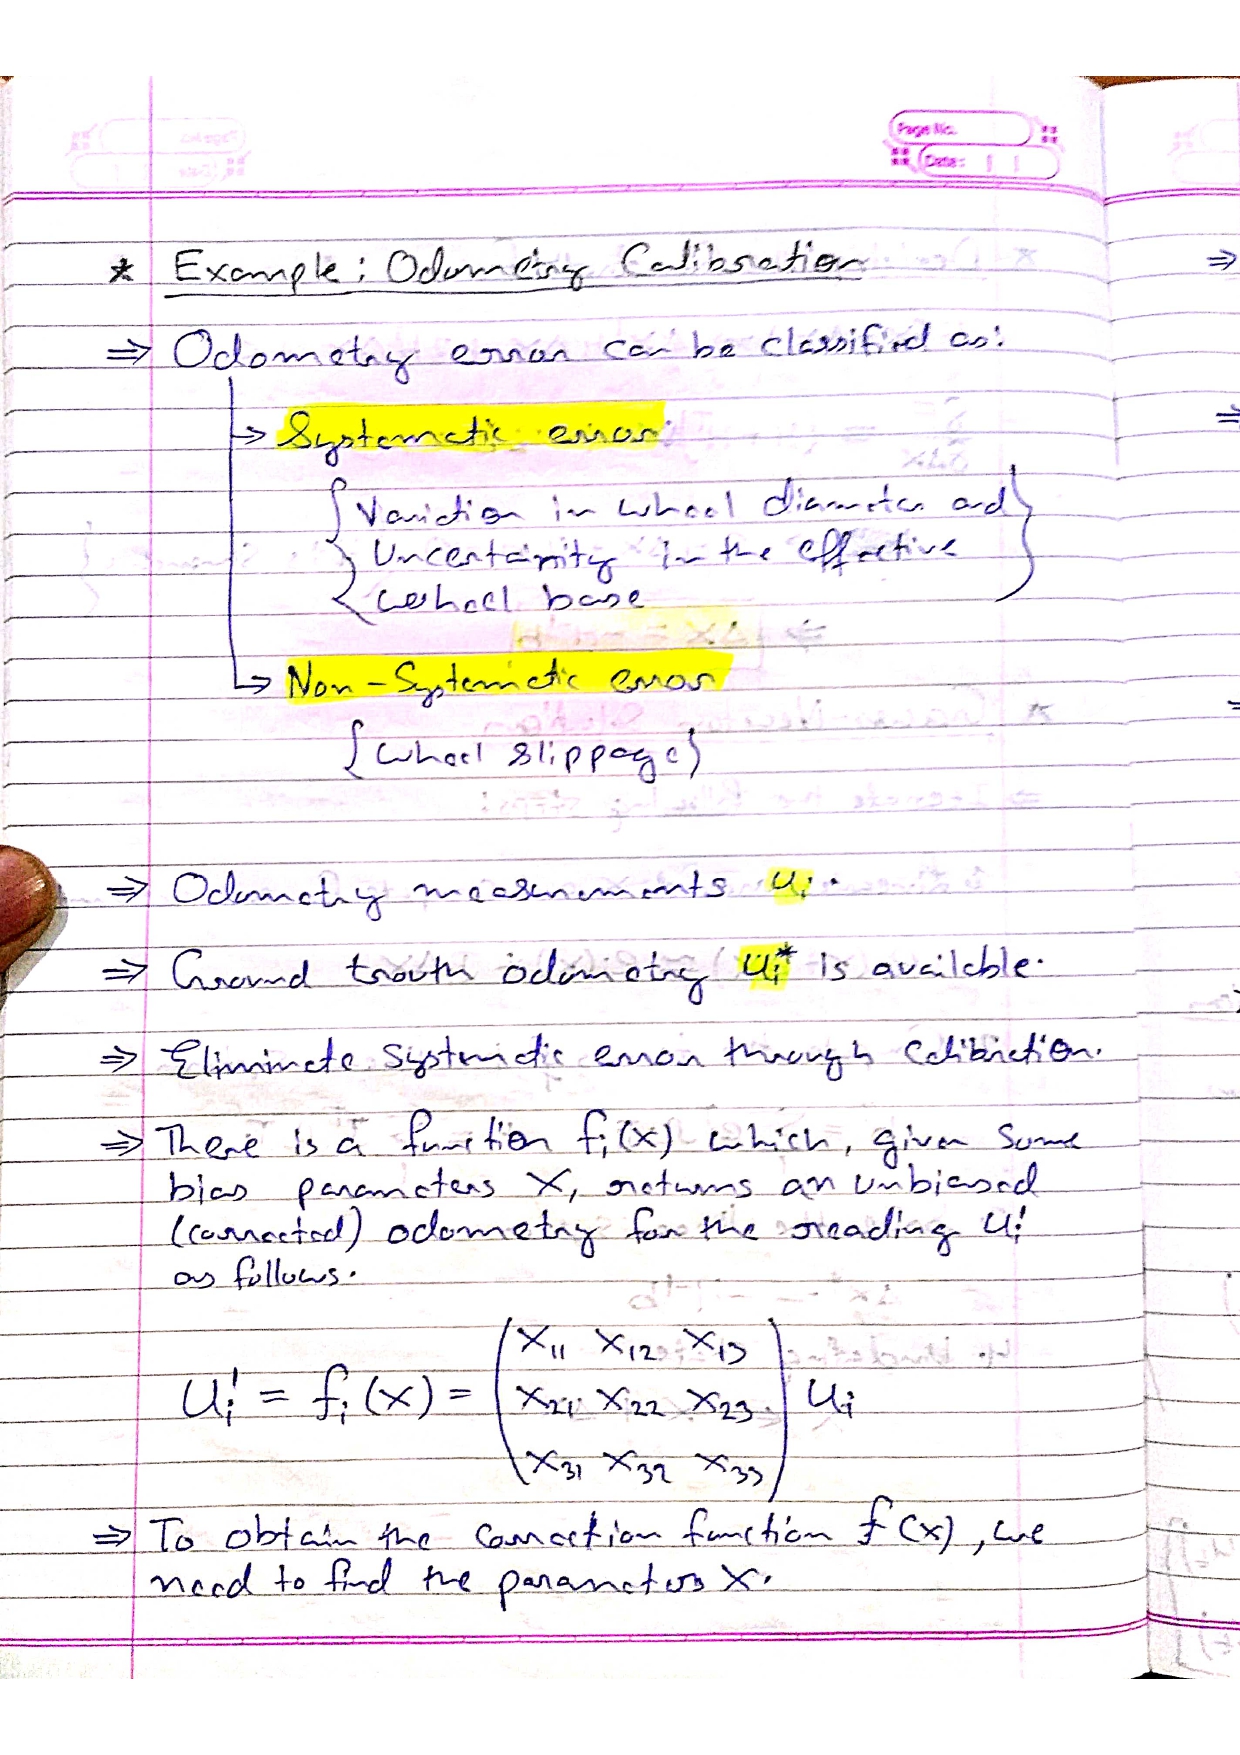 Page No.
Date:
* Example: Odometry Calibration
⇒ Odometry error can be classified as:
→ Systematic error
{Variction in wheel diameter and
Uncertainity in the effective
wheel base}
→ Non-Systematic error
{wheel slippage}
⇒ Odometry measurements uᵢ.
⇒ Ground trouth odometry uᵢ* is available.
⇒ Eliminate systematic error through calibration.
⇒ There is a function fᵢ(x) which, given some
bias parameters X, returns an unbiased
(corrected) odometry for the reading uᵢ'
as follows.
X₁₁ X₁₂ X₁₃
uᵢ' = fᵢ(x) = X₂₁ X₂₂ X₂₃ uᵢ
X₃₁ X₃₂ X₃₃
⇒ To obtain the correction function f(x), we
need to find the parameters X.